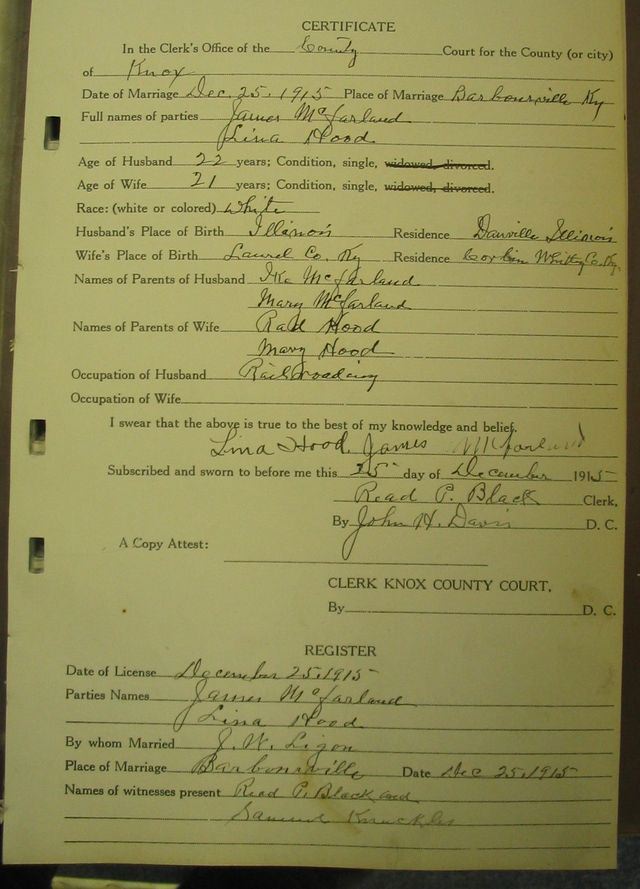 CERTIFICATE
In the Clerk's Office of the County Court for the County (or city)
of Knox
Date of Marriage Dec. 25, 1915 Place of Marriage Barbourville Ky
Full names of parties James McFarland
Lina Hood
Age of Husband 22 years; Condition, single, widowed, divorced.
Age of Wife 21 years; Condition, single, widowed, divorced.
Race: (white or colored) White
Husband's Place of Birth Illinois Residence Danville Illinois
Wife's Place of Birth Laurel Co. Ky Residence Corbin Whitley Co. Ky.
Names of Parents of Husband Ike McFarland
Mary McFarland
Names of Parents of Wife Rad Hood
Mary Hood
Occupation of Husband Railroading
Occupation of Wife
I swear that the above is true to the best of my knowledge and belief.
Lina Hood James McFarland
Subscribed and sworn to before me this 25 day of December 1915
Read P. Black Clerk,
By John H. Davis D. C.
A Copy Attest:
CLERK KNOX COUNTY COURT,
By D. C.
REGISTER
Date of License December 25, 1915
Parties Names James McFarland
Lina Hood
By whom Married J. W. Ligon
Place of Marriage Barbourville Date Dec 25, 1915
Names of witnesses present Read P. Black and
Samuel Knuckles